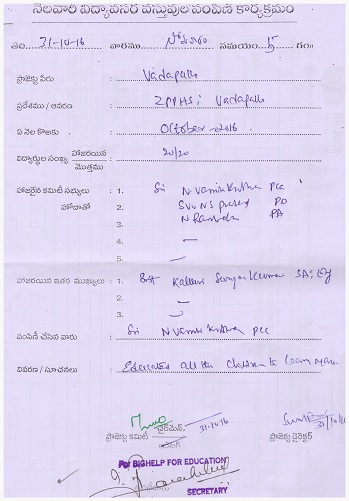 నెలవారి విద్యావసర వస్తువుల పంపిణీ కార్యక్రమం
తేది. 31-10-16 వారము సోమవారం సమయం 5 గం॥
ప్రాజెక్టు పేరు : Vadapalli
ప్రదేశము / ఆవరణ : ZPPHS; Vadapalli
ఏ నెల కొఱకు : October - 2016
విద్యార్థుల సంఖ్య హాజరయిన మొత్తము : 20/20
హాజరైన కమిటీ సభ్యులు : 1. Sri N Vamsi Krishna PCC
హోదాతో 2. SVV NS Prasad PD
3. N Rambabu PA
4. —
5.
హాజరయిన ఇతర ముఖ్యులు : 1. Kalluri SA; Eng
2. —
3. —
పంపిణీ చేసిన వారు : Sri N Vamsi Krishna PCC
వివరణ / సూచనలు : Educated all the Children to learn more
ప్రాజెక్టు కమిటీ ఛైర్మెన్ 31-10-16
ప్రాజెక్టు డైరెక్టర్ 31/10/16
For BIGHELP FOR EDUCATION
SECRETARY